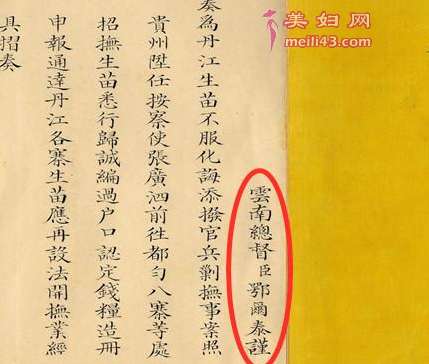 美妇网
meili43.com
雲南總督臣鄂爾泰謹
奏為丹江生苗不服化誨添撥官兵剿撫事案照
貴州陞任按察使張廣泗前往都勻八寨等處
招撫生苗悉行歸誠編過户口認定錢糧造冊
申報通達丹江各寨生苗應再設法開撫業經
具摺奏